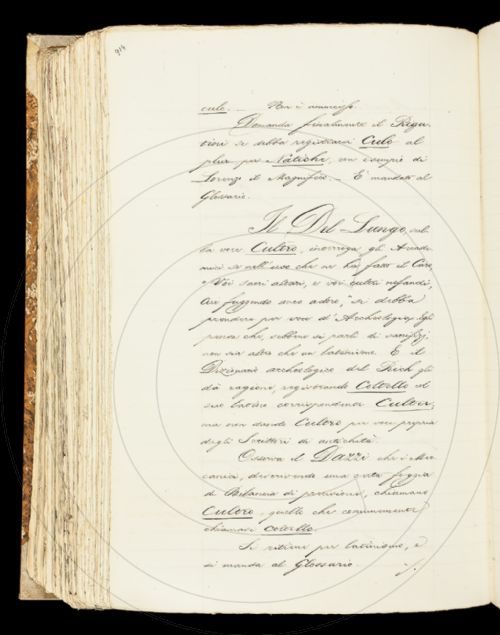 914
culo. — Non è ammesso.
Domanda finalmente il Rigu-
tini se debba registrarsi Culo al
plur. per Natiche, con esempio di
Lorenzo il Magnifico. — È mandato al
Glossario.
Il Del Lungo, sul-
la voce Cultro, interroga gli Accade-
mici se all'uso che ne ha fatto il Caro
Voi sacri altari, e voi cultri nefandi,
fuggendo adoro, si debba
prendere per voce d'Archeologia; egli
pensa che, sebbene si parli di sacrifizj,
non sia altro che un latinismo. E il
Dizionario archeologico del Rich gli
dà ragione, registrando Coltello ed
suo latino corrispondente Culter,
ma non dando Cultro per voce propria
degli Scrittori di antichità.
Osserva il Dazzi che i Mec-
canici, descrivendo una certa foggia
di Bilancia di precisione, chiamano
Cultro, quello che comunemente
chiamasi coltello.
Si ritiene per latinismo, e
si manda al Glossario.